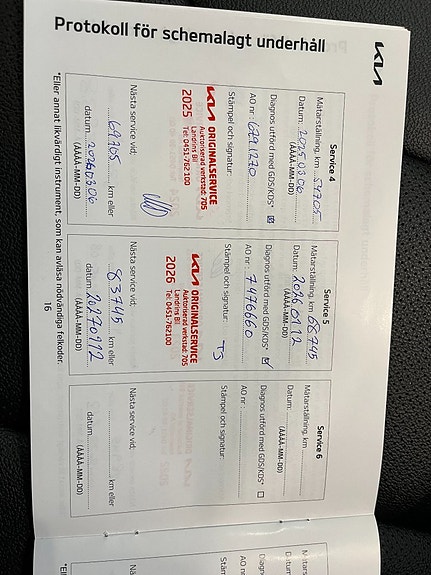 Protokoll för schemalagt underhåll
KIA
Service 4
Mätarställning, km 54705
Datum: 2025.03.06
(ÅÅÅÅ-MM-DD)
Diagnos utförd med GDS/KDS*
AO nr: 6791270
Stämpel och signatur:
KIA ORIGINALSERVICE
Auktoriserad verkstad: 705
Landrins Bil
Tel: 0451-762 100
2025
Nästa service vid:
69705 km eller
datum: 20260306
(ÅÅÅÅ-MM-DD)
Service 5
Mätarställning, km 68745
Datum: 2026 01 12
(ÅÅÅÅ-MM-DD)
Diagnos utförd med GDS/KDS*
AO nr: 7476660
Stämpel och signatur:
TJ
KIA ORIGINALSERVICE
Auktoriserad verkstad: 705
Landrins Bil
Tel: 0451-762100
2026
Nästa service vid:
83745 km eller
datum: 20270112
(ÅÅÅÅ-MM-DD)
Service 6
Mätarställning, km
Datum:
(ÅÅÅÅ-MM-DD)
Diagnos utförd med GDS/KDS*
AO nr:
Stämpel och signatur:
Nästa service vid:
km eller
datum:
(ÅÅÅÅ-MM-DD)
*Eller annat likvärdigt instrument, som kan avläsa nödvändiga felkoder.
16
*Eller